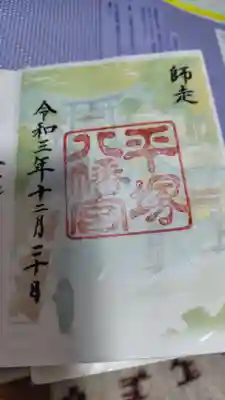 師走
平塚
八幡宮
令和三年十二月三十日